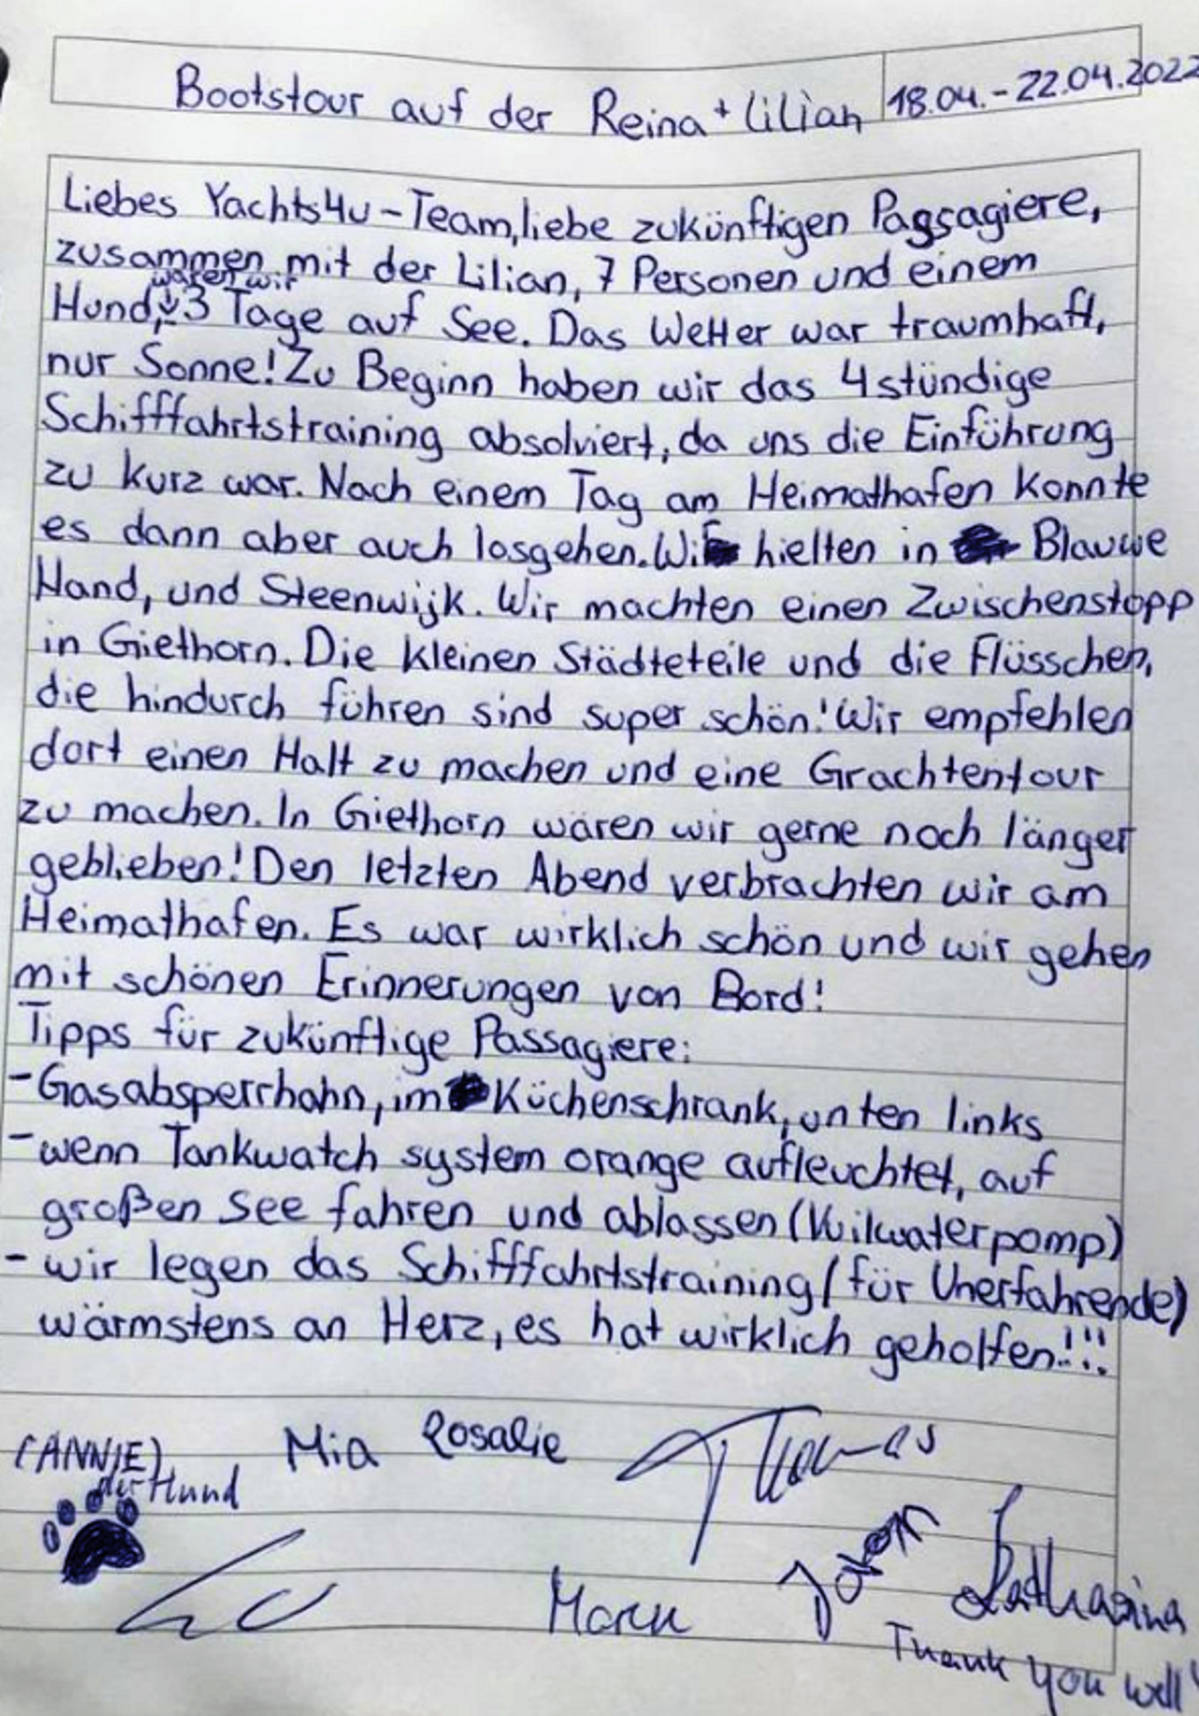 Bootstour auf der Reina + Lilian 18.04.-22.04.2022
Liebes Yachts4u-Team, liebe zukünftigen Passagiere,
zusammen mit der Lilian, 7 Personen und einem
waren wir
Hund, 3 Tage auf See. Das Wetter war traumhaft,
nur Sonne! Zu Beginn haben wir das 4stündige
Schifffahrtstraining absolviert, da uns die Einführung
zu kurz war. Nach einem Tag am Heimathafen konnte
es dann aber auch losgehen. Wir hielten in Blauwe
Hand, und Steenwijk. Wir machten einen Zwischenstopp
in Giethorn. Die kleinen Städteteile und die Flüsschen,
die hindurch führen sind super schön! Wir empfehlen
dort einen Halt zu machen und eine Grachtentour
zu machen. In Giethorn wären wir gerne noch länger
geblieben! Den letzten Abend verbrachten wir am
Heimathafen. Es war wirklich schön und wir gehen
mit schönen Erinnerungen von Bord!
Tipps für zukünftige Passagiere:
- Gasabsperrhahn, im Küchenschrank, unten links
- wenn Tankwatch system orange aufleuchtet, auf
großen See fahren und ablassen (Vuilwaterpomp)
- wir legen das Schifffahrtstraining (für Unerfahrende)
wärmstens an Herz, es hat wirklich geholfen!!!
(ANNIE) Mia Rosalie Thomas
der Hund
Katharina
Thank you well